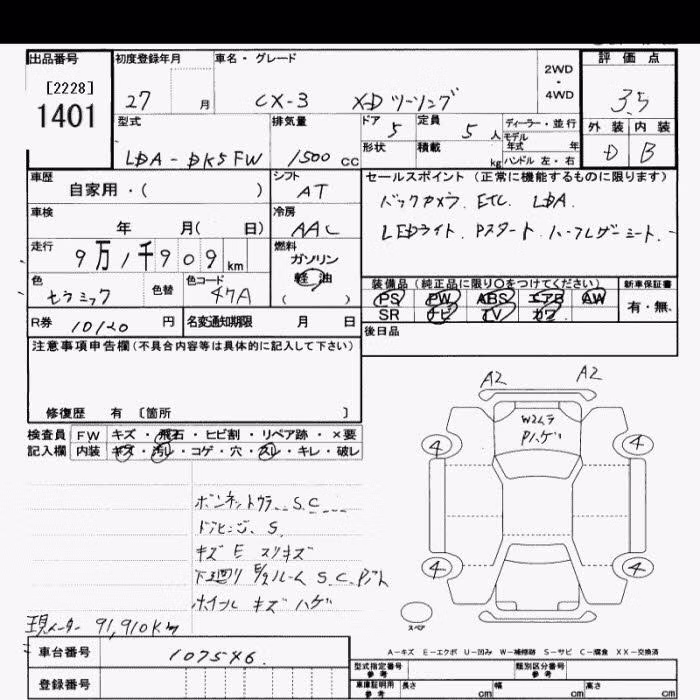 出品番号
[2228]
1401
初度登録年月 27 月
車名・グレード CX-3 XD ツーリング
2WD
・
4WD
評価点
3.5
外装 内装
D B
型式 LDA - DK5FW
排気量 1500 cc
ドア 5
定員 5 人
形状
積載 kg
ディーラー・並行
モデル
年式 年
ハンドル 左・右
車歴
自家用・( )
シフト AT
車検 年 月( 日)
冷房 AAC
走行 9万1千909km
燃料
ガソリン
軽油
( )
色 セラミック
色替
色コード 47A
R券 10120 円
名変通知期限 月 日
セールスポイント (正常に機能するものに限ります)
バックカメラ. ETC. LDA.
LEDライト. Pスタート. ハーフレザーシート.
装備品 (純正品に限り○をつけてください)
新車保証書
PS PW ABS エアB AW
有・無
SR ナビ TV カワ
後日品
注意事項申告欄 (不具合内容等は具体的に記入して下さい)
修復歴 有 〔箇所 〕
検査員
記入欄
FW キズ・飛石・ヒビ割・リペア跡・×要
内装 キズ・汚レ・コゲ・穴・スレ・キレ・破レ
ボンネットウラ S.C
ドアヒンジ. S.
キズ E スリキズ
下廻り E/gルーム S.C.
ホイール キズ ハゲ
現メーター 91,910km
A2 A2
Wムラ
Pハゲ
4 4
4 4
スペア
A-キズ E-エクボ U-凹み W-補修跡 S-サビ C-腐食 XX-交換済
車台番号 107546
登録番号
型式指定番号
参考
類別区分番号
参考
車庫証明用
参考
長さ cm
幅 cm
高さ cm